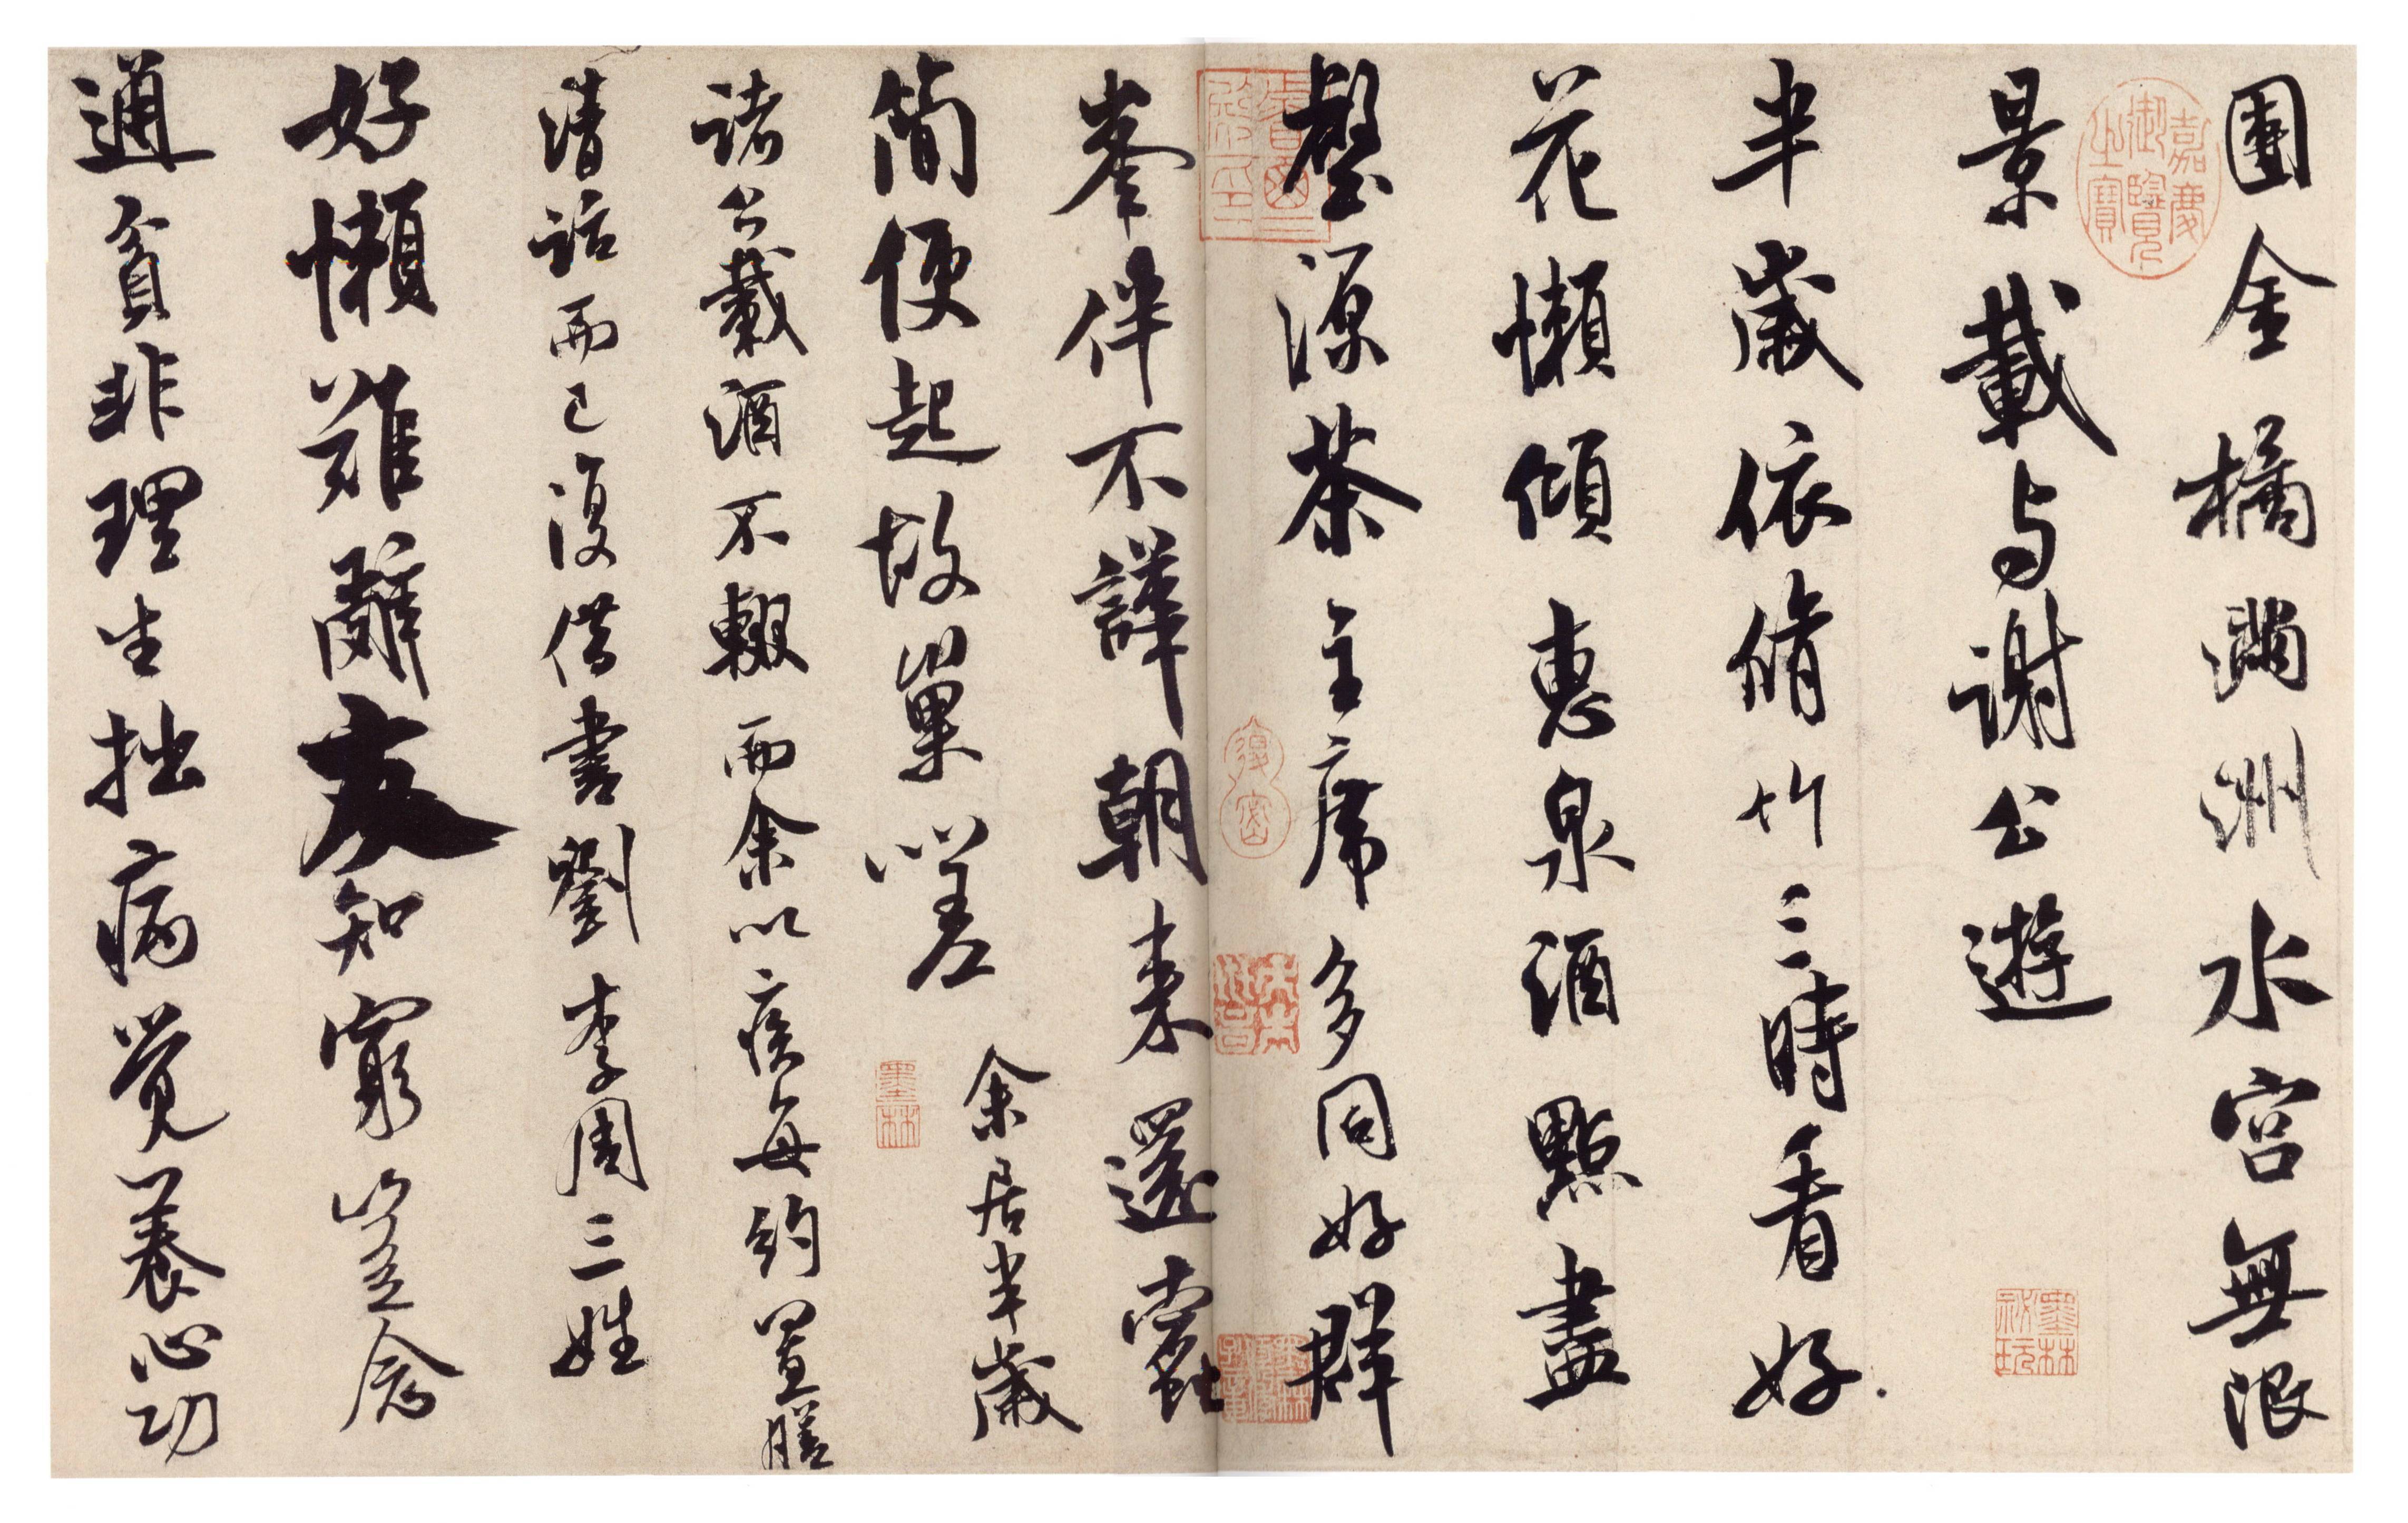 團金橘滿洲水宮無限
景載与謝公遊
半歲依脩竹三時看好
花懶傾惠泉酒點盡
壑源茶主席多同好群
峯伴不譁朝來還蠹
簡便起故巢嗟
余居半歲
諸公載酒不輟而余以疾每約置膳
清話而已復借書劉李周三姓
好懶難辭友知窮豈念
通貧非理生拙病覺養心功
嘉慶御覽之寶
墨林秘玩
墨林